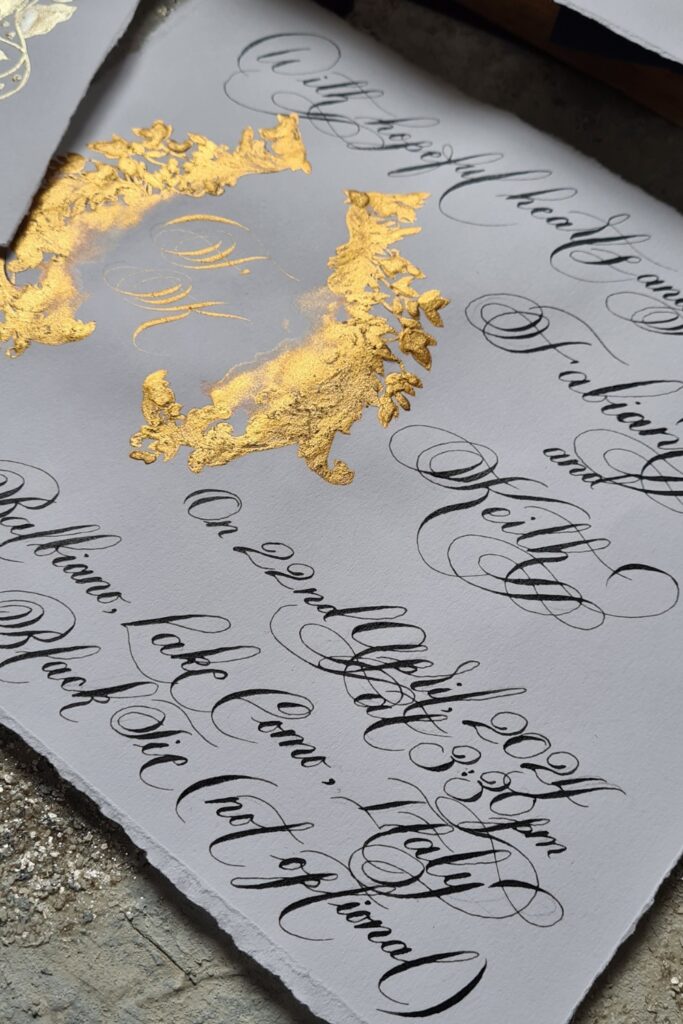 With hopeful hearts and
Fabian
and
Keith
On 22nd April, 2024
at 3:30pm
Balbiano, Lake Como, Italy
Black Tie (not optional)